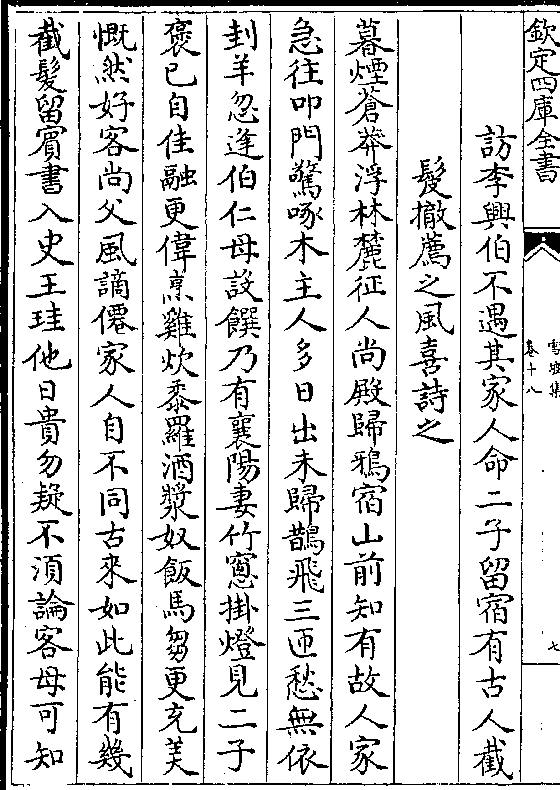 欽定四庫全書
雪坡集
卷十八
七
訪李興伯不遇其家人命二子留宿有古人截
髮撤薦之風喜詩之
暮煙蒼莽浮林麓征人尚殿歸鴉宿山前知有故人家
急往叩門驚啄木主人多日出未歸鵲飛三匝愁無依
刲羊忽逢伯仁母設饌乃有襄陽妻竹窻掛燈見二子
褒已自佳融更偉烹雞炊黍羅酒漿奴飯馬芻更充美
慨然好客尚父風謫僊家人自不同古來如此能有幾
截髮留賓書入史王珪他日貴勿疑不須論客母可知